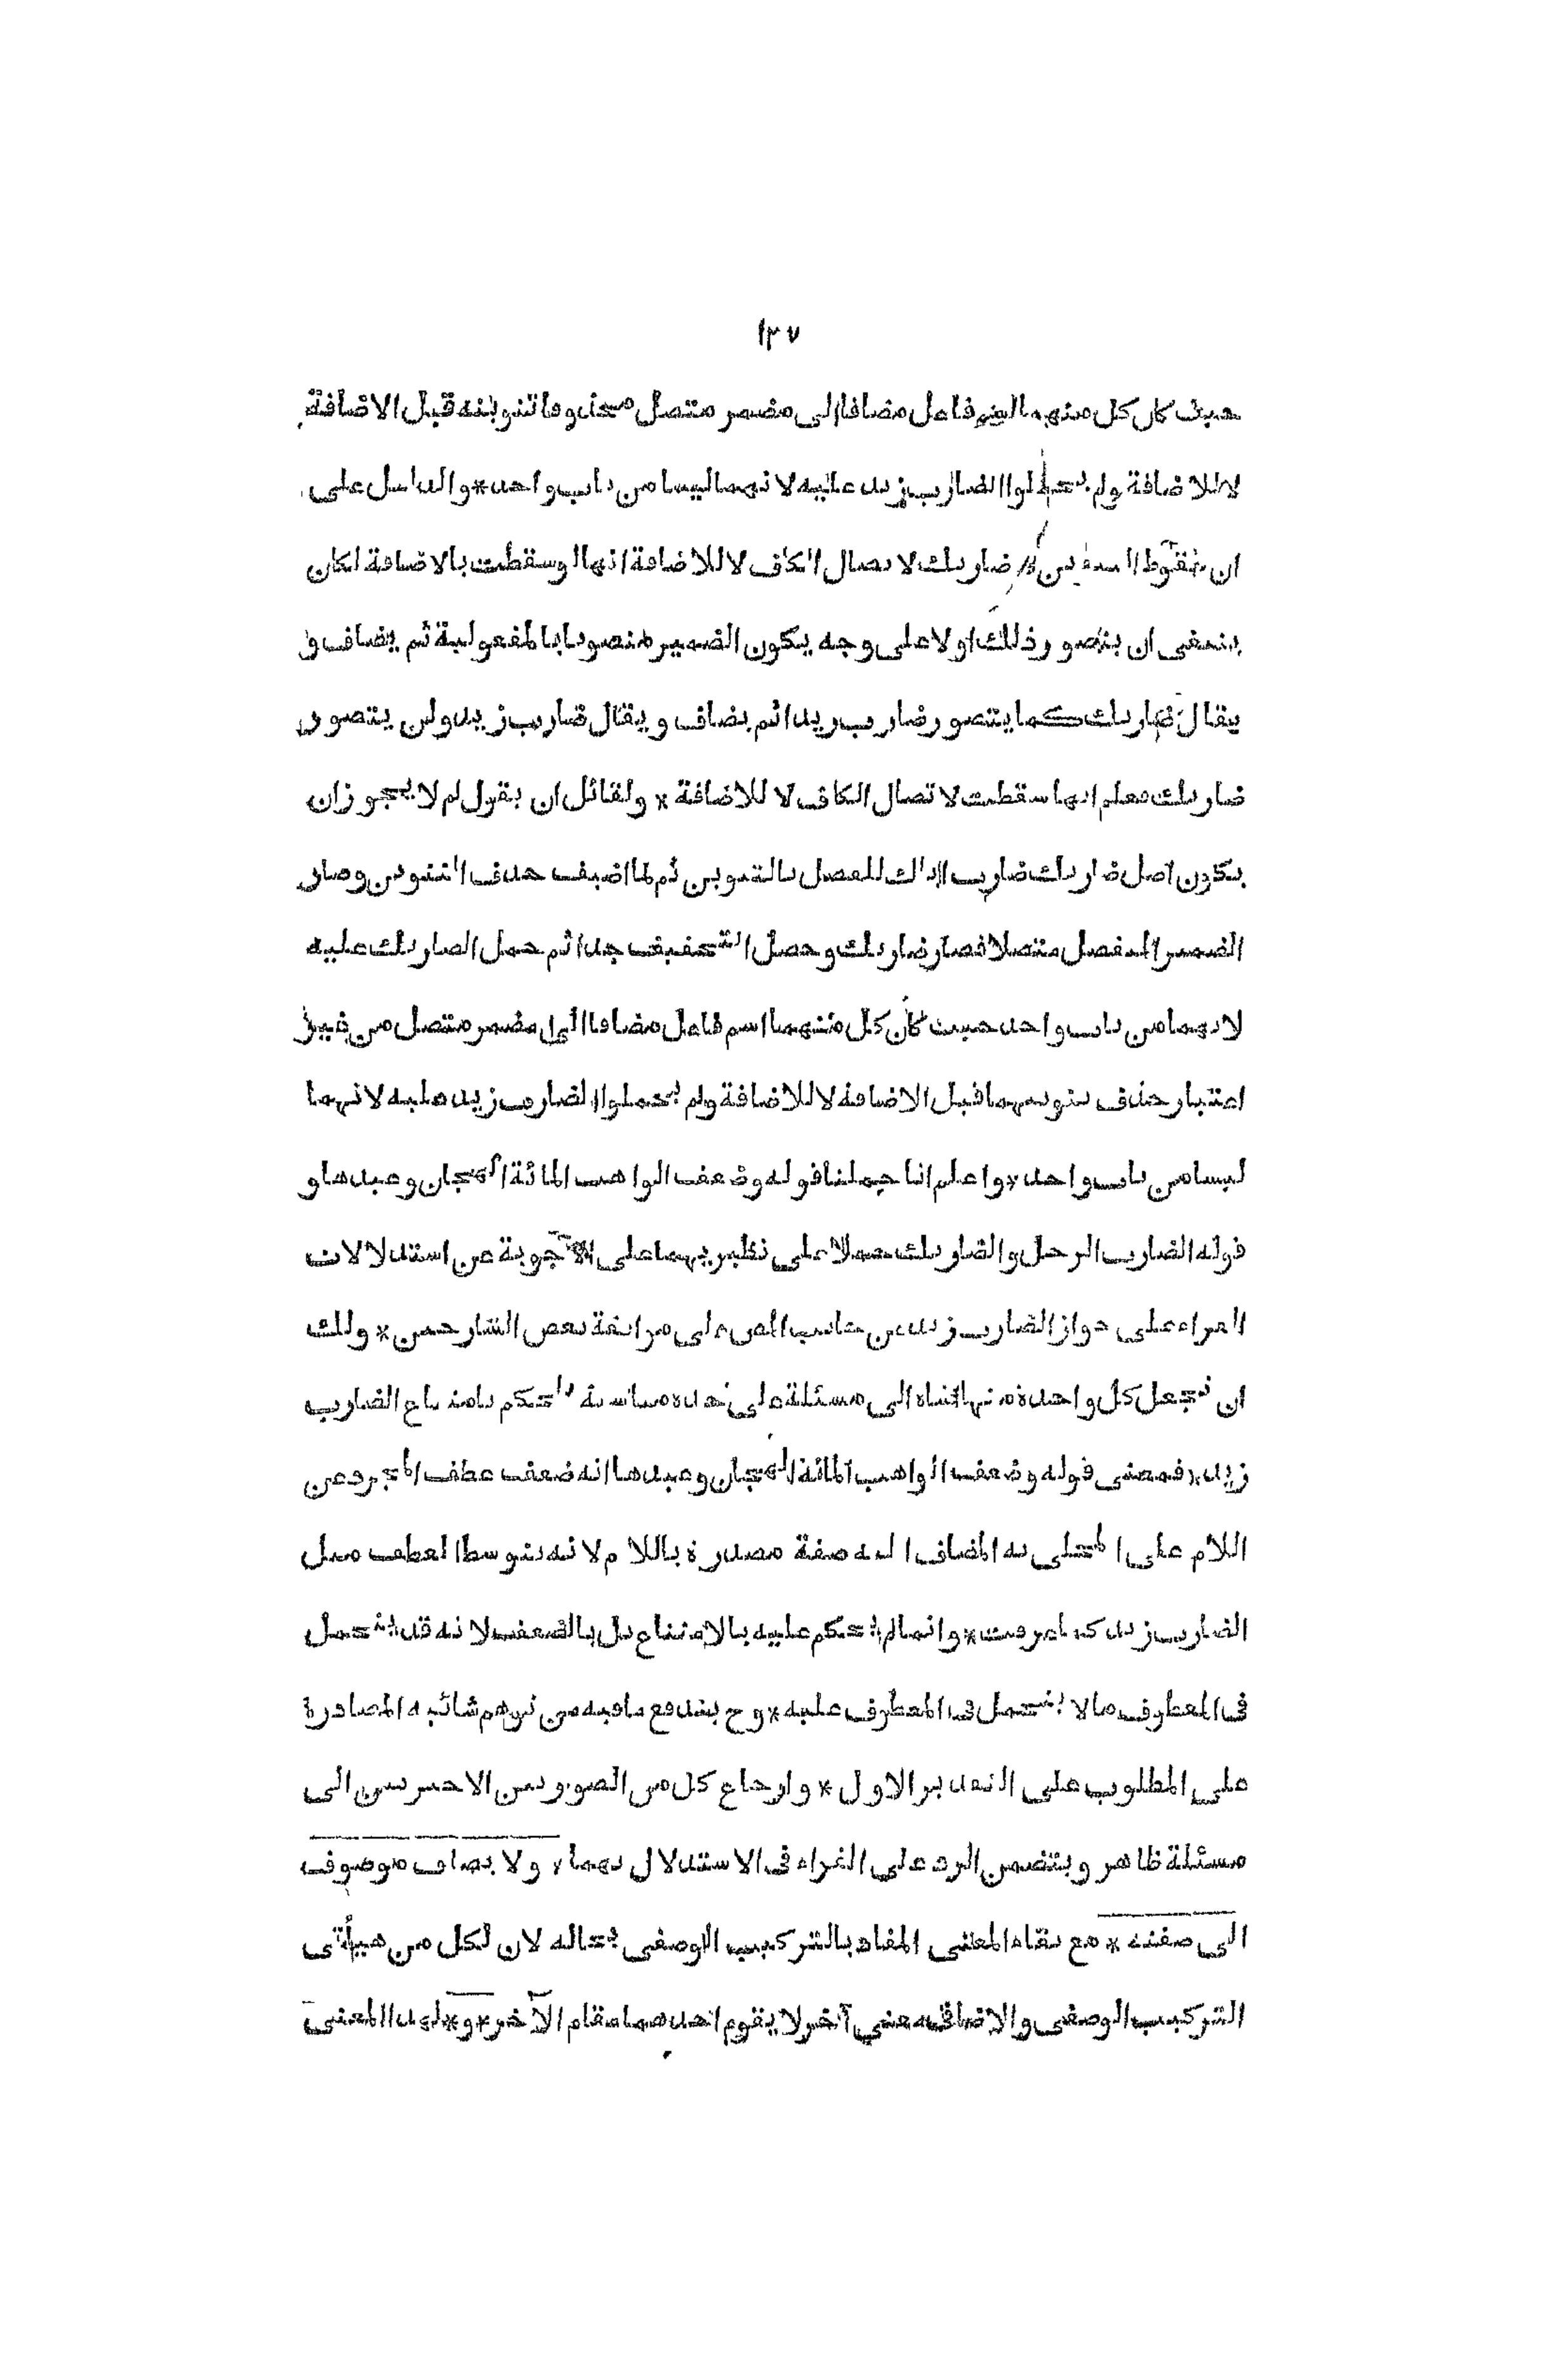 ١٣٧
حيث كان كل منهما اسم فاعل مضافا الى مضمر متصل محذوفا تنوينه قبل الاضافة
لا للاضافة ولم يحملوا الضارب زيد عليه لانهما ليسا من باب واحد * والدليل على
ان سقوط التنوين في ضاربك لاتصال الكاف لا للاضافة انها لو سقطت بالاضافة لكان
ينبغى ان يتصور ذلك اولا على وجه يكون الضمير منصوبا بالمفعولية ثم يضاف و
يقال ضاربك كما يتصور ضارب زيدا ثم يضاف ويقال ضارب زيد ولن يتصور
ضاربك فعلم انها سقطت لاتصال الكاف لا للاضافة * ولقائل ان يقول لم لا يجوز ان
يكون اصل ضاربك ضارب اياك للفصل بالتنوين ثم لما اضيف حذف التنوين وصار
الضمير المنفصل متصلا فصار ضاربك وحصل التخفيف جدا ثم حمل الضاربك عليه
لانهما من باب واحد حيث كان كل منهما اسم فاعل مضافا الى مضمر متصل من غير
اعتبار حذف تنوينهما قبل الاضافة لا للاضافة ولم يحملوا الضارب زيد عليه لانهما
ليسا من باب واحد * واعلم انا حملنا قوله وضعف الواهب المائة الهجان وعبدها و
قوله الضارب الرجل والضاربك حملا على نظيريهما على الاجوبة عن استدلالات
الفراء على جواز الضارب زيد من جانب المص على موافقة بعض الشارحين * ولك
ان تجعل كل واحدة منها اشاة الى مسئلة على حدة مناسبة للحكم بامتناع الضارب
زيد * فمعنى قوله وضعف الواهب المائة الهجان وعبدها انه ضعف عطف المجرد عن
اللام على المحلى به المضاف اليه صفة مصدرة باللام لانه بتوسط العطف مثل
الضارب زيد كما عرفت * وانما لم يحكم عليه بالامتناع بل بالضعف لانه قد يتحمل
فى المعطوف ما لا يتحمل فى المعطوف عليه * وح يندفع ما فيه من توهم شائبه المصادرة
على المطلوب على التقدير الاول * وارجاع كل من الصورتين الاخيرتين الى
مسئلة ظاهر ويتضمن الرد على الفراء فى الاستدلال بهما * ولا يضاف موصوف
الى صفته * مع بقاء المعنى المفاد بالتركيب الوصفى بحاله لان لكل من هيأتى
التركيب الوصفى والاضافى معنى آخر لا يقوم احدهما مقام الآخر * و * لهذا المعنى